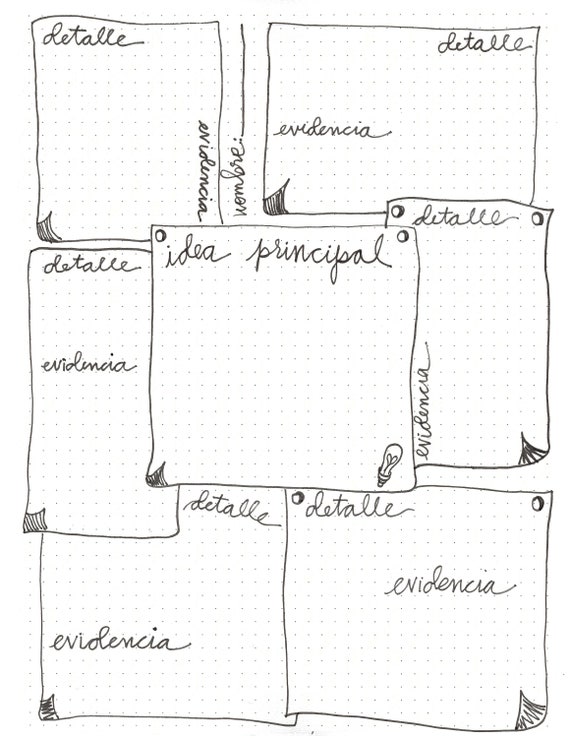 detalle
evidencia
nombre:
detalle
evidencia
detalle
evidencia
idea principal
detalle
evidencia
detalle
evidencia
detalle
evidencia